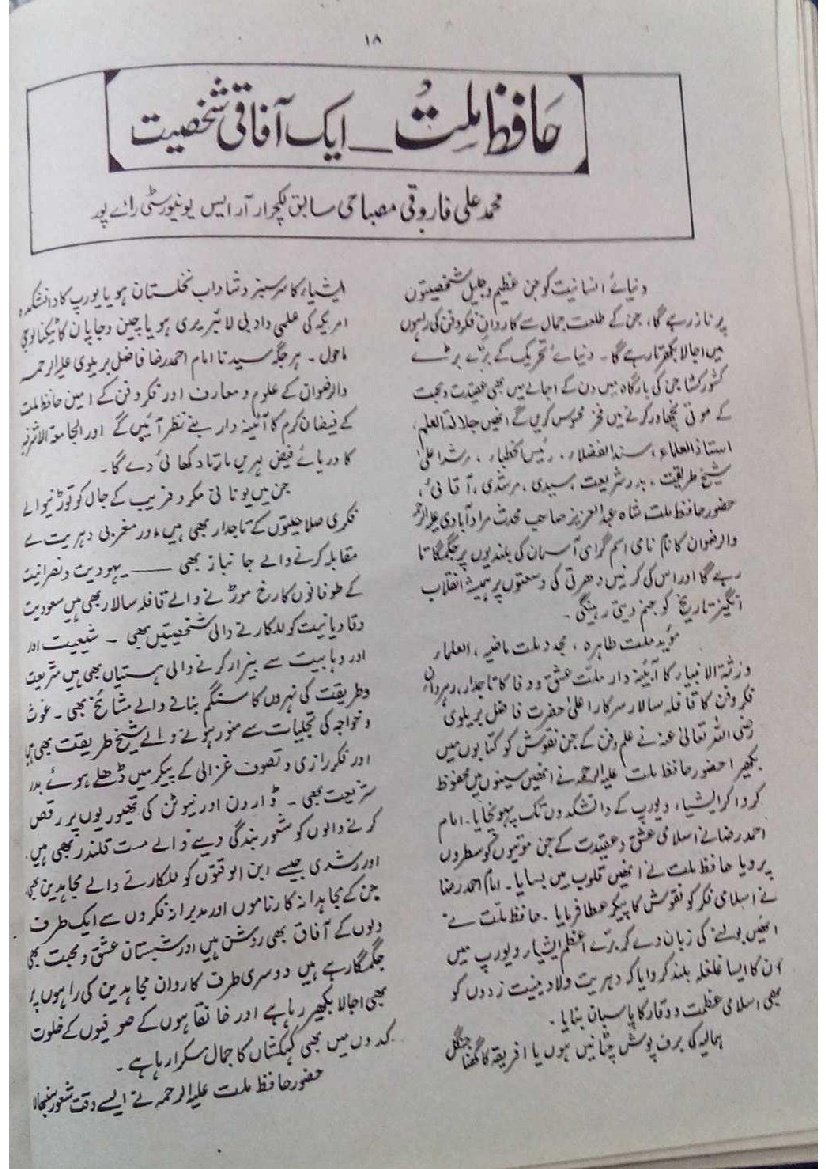 ۱۸
حافظ ملتؒ ــ ایک آفاقی شخصیت
محمد علی فاروقی مصباحی سابق لکچرار آر ایس یونیورسٹی رائے پور
دنیائے انسانیت کو جن عظیم و جلیل شخصیتوں
پر ناز رہے گا، جن کے طلعت جمال سے کاروانِ فکر و فن کی راہوں
میں اجالا بکھرتا رہے گا۔ دنیائے تحریک کے بڑے بڑے
کشور کشا جن کی بارگاہ میں دن کے اجالے میں بھی عقیدت و محبت
کے موتی نچھاور کرنے میں فخر محسوس کریں گے انھیں جلالۃ العلم،
استاذ العلماء، سند الفضلاء، رئیس الخطباء، مرشد اعلیٰ
شیخ طریقت، بدر شریعت، سیدی، مرشدی، آقائی،
حضور حافظ ملت شاہ عبد العزیز صاحب محدث مرادآبادی علیہ الرحمۃ
والرضوان کا نام نامی اسم گرامی آسمان کی بلندیوں پر جگمگاتا
رہے گا اور اس کی کرنیں دھرتی کی وسعتوں پر ہمیشہ انقلاب
انگیز تاریخ کو جنم دیتی رہینگی۔
مؤید ملت طاہرہ، مجدد ملت ماضیہ، العلماء
ورثۃ الانبیاء کا آئینہ دار ملتِ عشق و وفا کا تاجدار، رہروان
فکر و فن کا قافلہ سالار سرکار اعلیٰ حضرت فاضل بریلوی
رضی اللہ تعالیٰ عنہ نے علم و فن کے جن نقوش کو کتابوں میں
بکھیرا حضور حافظ ملت علیہ الرحمہ نے انھیں سینوں میں محفوظ
کروا کر ایشیاء و یورپ کے دانشکدوں تک پہونچایا۔ امام
احمد رضا نے اسلامی عشق و عقیدت کے جن موتیوں کو سطروں
پر دیا حافظ ملت نے انھیں قلوب میں بسایا۔ امام احمد رضا
نے اسلامی فکر کو نقوش کا پیکر عطا فرمایا۔ حافظ ملت نے
انھیں بولنے کی زبان دے کر برِّ اعظم ایشیاء و یورپ میں
ان کا ایسا غلغلہ بلند کر دیا کہ دہریت و لادینیت زدوں کو
بھی اسلامی عظمت و وقار کا پاسبان بنایا۔
ہمالیہ کی برف پوش چٹانیں ہوں یا افریقہ کا گھنا جنگل
ایشیاء کا سرسبز و شاداب نخلستان ہو یا یورپ کا دانشکدہ
امریکہ کی علمی و ادبی لائبریری ہو یا چین و جاپان کا ٹیکنالوجی
ماحول۔ ہر جگہ سیدنا امام احمد رضا فاضل بریلوی علیہ الرحمہ
والرضوان کے علوم و معارف اور فکر و فن کے امین حافظ ملت
کے فیضان کرم کا آئینہ دار بنے نظر آئیں گے اور الجامعۃ الاشرفیہ
کا دریائے فیض لہریں مارتا دکھائی دے گا۔
جن میں یونانی مکر و فریب کے جال کو توڑنیوالے
فکری صلاحیتوں کے تاجدار بھی ہیں، اور مغربی دہریت سے
مقابلہ کرنے والے جانباز بھی ــــ یہودیت و نصرانیت
کے طوفانوں کا رخ موڑنے والے قافلہ سالار بھی ہیں سعودیت
و قادیانیت کو للکارنے والی شخصیتیں بھی۔ شیعیت اور
اور وہابیت سے بیزار کرنے والی ہستیاں بھی ہیں شریعت
و طریقت کی نہروں کا سنگم بنانے والے مشائخ بھی۔ غوث
و خواجہ کی تجلیات سے منور ہونے والے شیخ طریقت بھی ہیں
اور فکر رازی و تصوف غزالی کے پیکر میں ڈھلے ہوئے بدر
شریعت بھی۔ ڈارون اور نیوٹن کی تھیوریوں پر رقص
کرنے والوں کو شعور بندگی دینے والے مست قلندر بھی ہیں،
اور رشدی جیسے ابن الوقتوں کو للکارنے والے مجاہدین بھی
جن کے مجاہدانہ کارناموں اور مدبرانہ فکروں سے ایک طرف
دلوں کے آفاق بھی روشن ہیں اور شبستان عشق و محبت بھی
جگمگا رہے ہیں دوسری طرف کاروان مجاہدین کی راہوں پر
بھی اجالا بکھیر رہا ہے اور خانقاہوں کے صوفیوں کے خلوت
کدوں میں بھی کہکشاں کا جمال مسکرا رہا ہے۔
حضور حافظ ملت علیہ الرحمہ نے ایسے وقت شعور سنبھالا